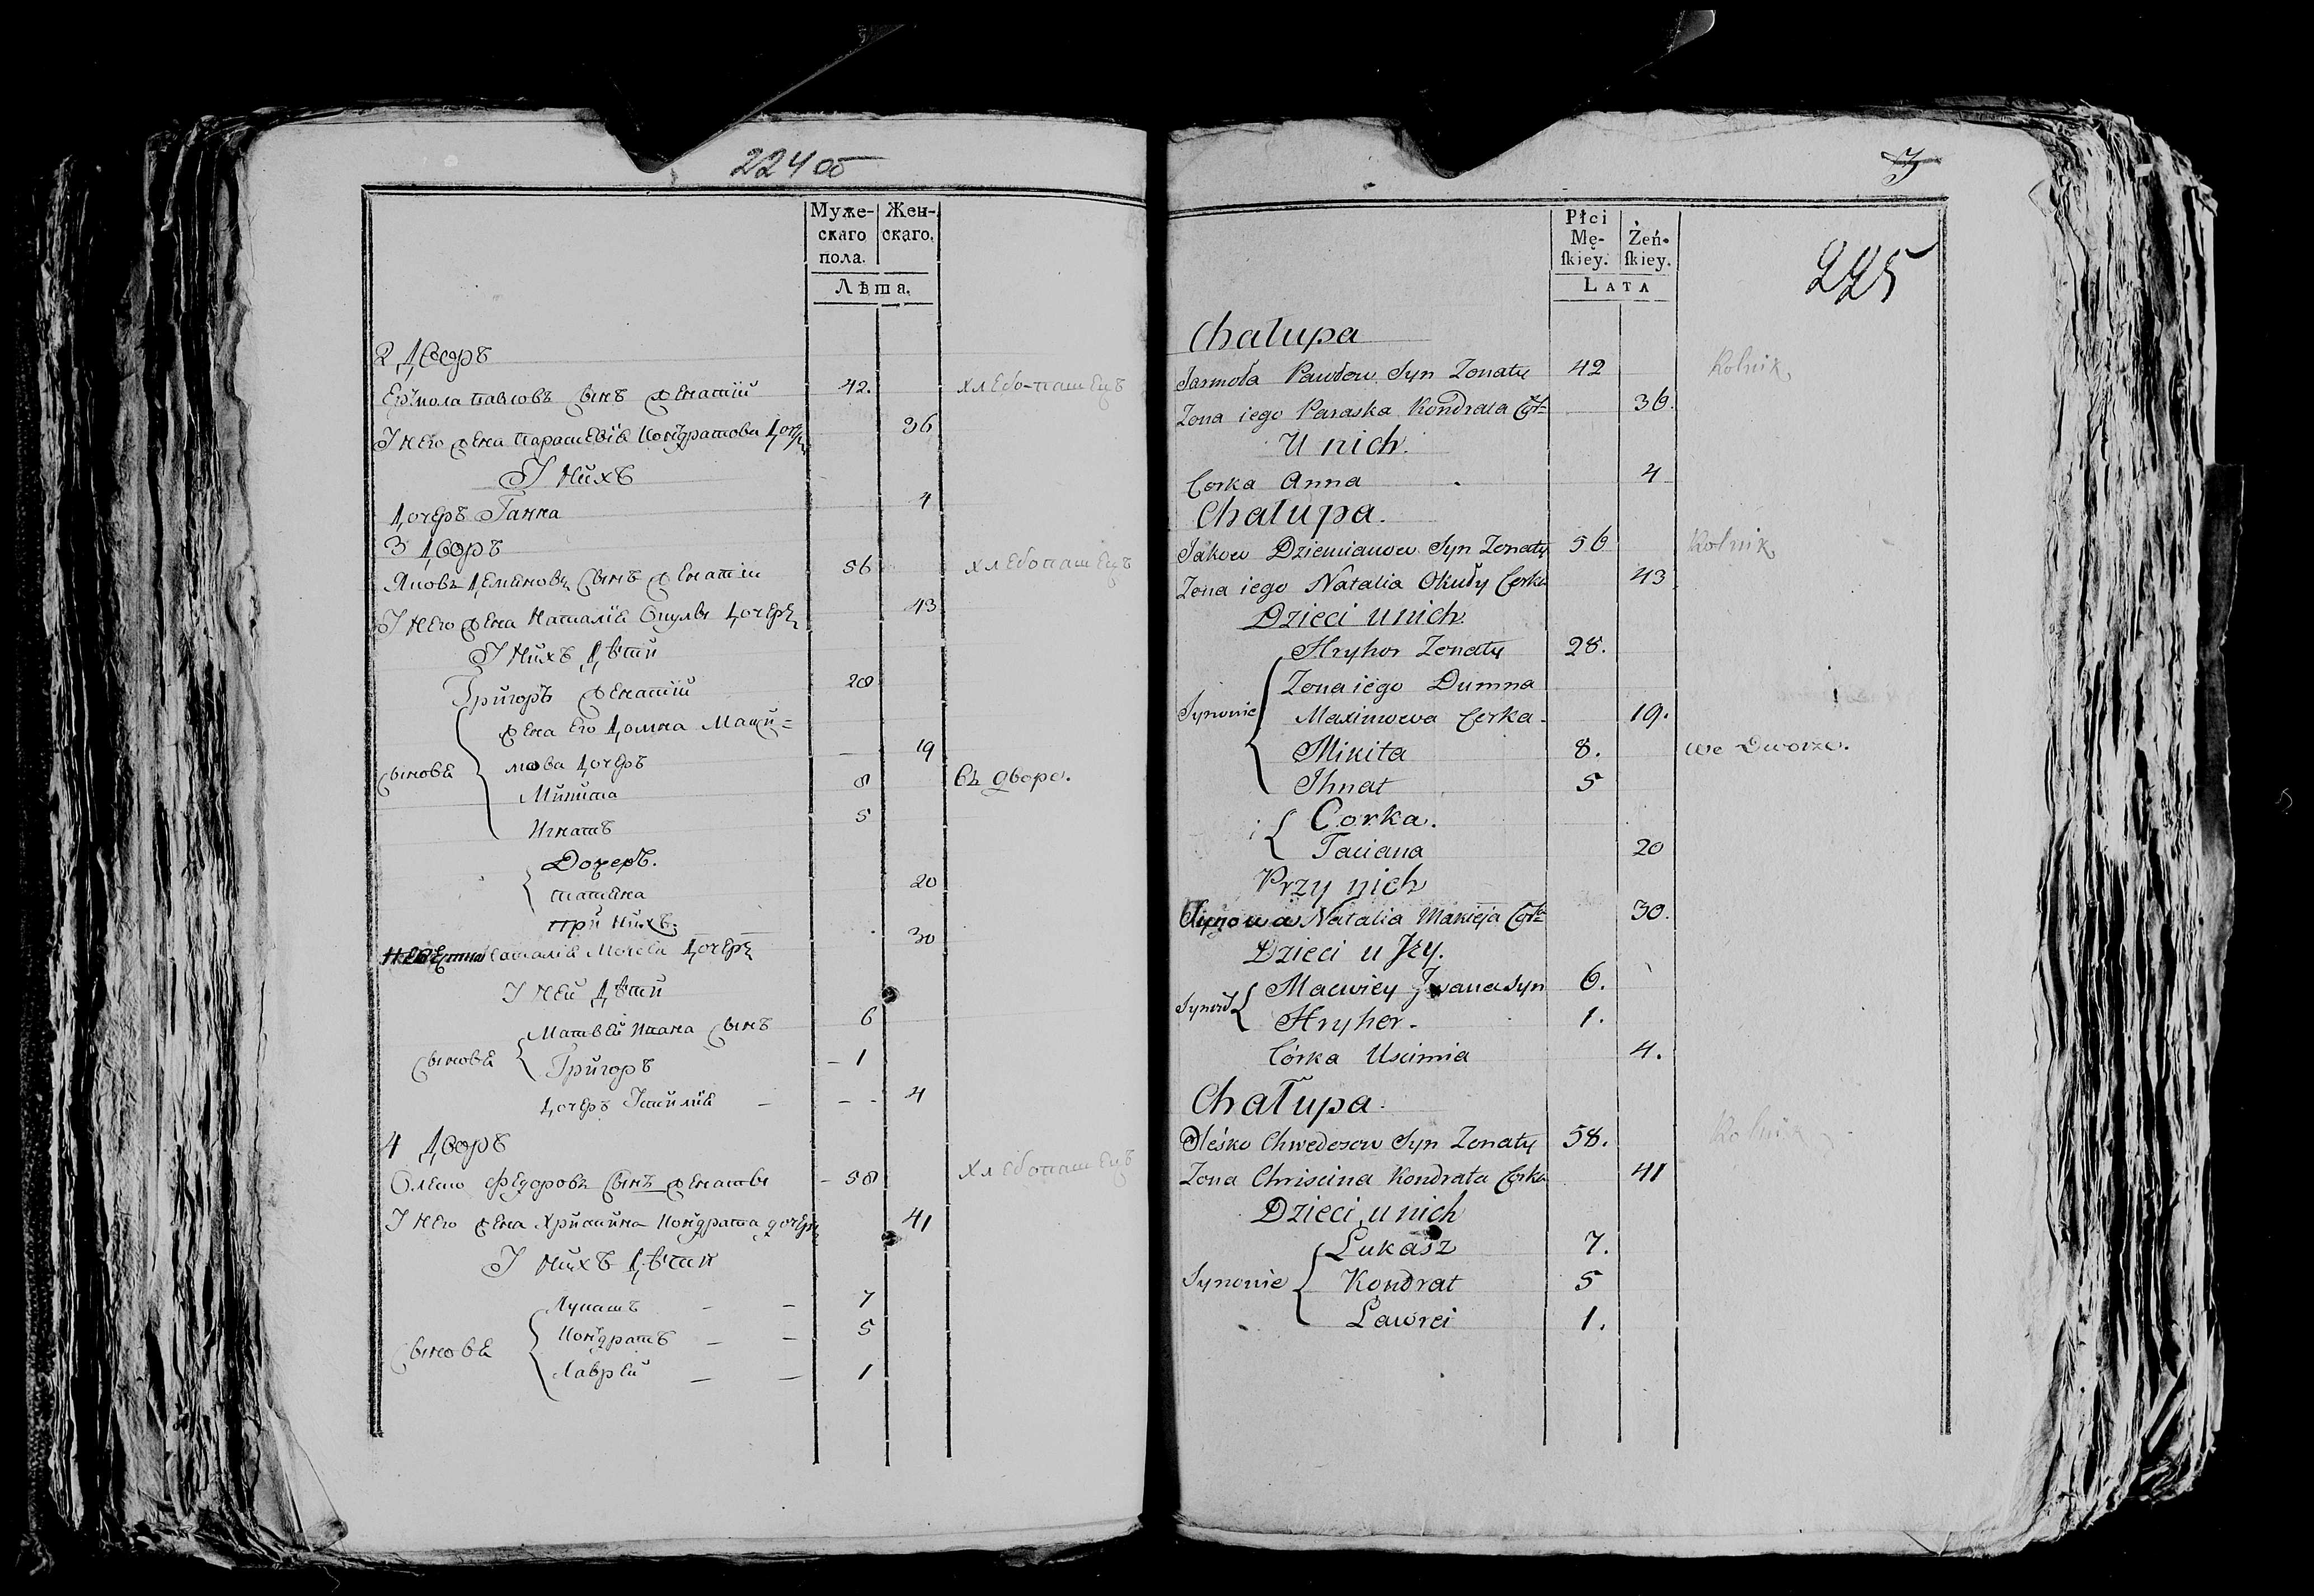 224 об
Муже- Жен-
скаго скаго.
пола.
Лѣта.
2 Дворъ
Ермола Павловъ сынъ женатій 42. хлебо-пашецъ
У него жена Парасковія Кондратова дочеръ 36
У нихъ
дочеръ Ганна 4
3 Дворъ
Яковъ Деміновъ сынъ женатій 56 хлебопашецъ
У него жена Наталія Окулы дочеръ 43
У нихъ дѣти
Григоръ женатій 28
жена его Домна Макси=
мова дочеръ 19
сынове Микита 8 въ дворе.
Игнатъ 5
Дочеръ.
Татіяна 20
при нихъ
Наталія дочеръ 30
У ней дѣти
Матвѣй Ивана сынъ 6
сынове Григоръ 1
дочеръ 4
4 Дворъ
Олеско Федоровъ сынъ женаты 58 хлебопашецъ
У него жена Христина Кондрата дочеръ 41
У нихъ дѣти
Лукашъ 7
Кондратъ 5
сынове
Лаврей 1
7
225
Płci
Mę- Żeń-
skiey. skiey.
LATA
Chałupa
Jarmoła Pawłow Syn Zonaty 42 Rolnik
Zona iego Paraska Kondrata Cór= 36.
U nich.
Corka Anna 4
Chałupa.
Jakow Dziemianow Syn Zonaty 56 Rolnik
Zona iego Natalia Okuły Corka 43
Dzieci u nich
Hryhor Zonaty 28.
Zona iego Dumna
Synowie
Maximowa Corka 19.
Mikita 8. we Dworze.
Ihnat 5
i Corka.
Taciana 20
Przy nich
Synowa Natalia Makieja Cór= 30.
Dzieci u Jey.
Maciviey Jwana Syn 6.
Synow
Hryhor 1.
Córka Uscimia 4.
Chałupa.
Oleśko Chwedorow Syn Zonaty 58. Rolnik
Zona Chriscina Kondrata Corka 41
Dzieci u nich
Lukasz 7.
Synowie Kondrat 5
Lawrei 1.